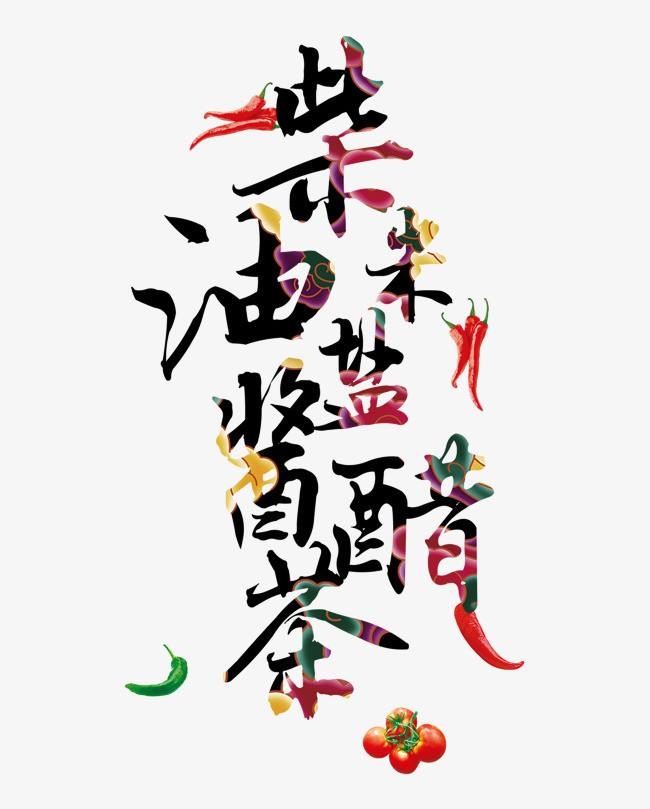 柴
米
油
盐
醬
醋
茶